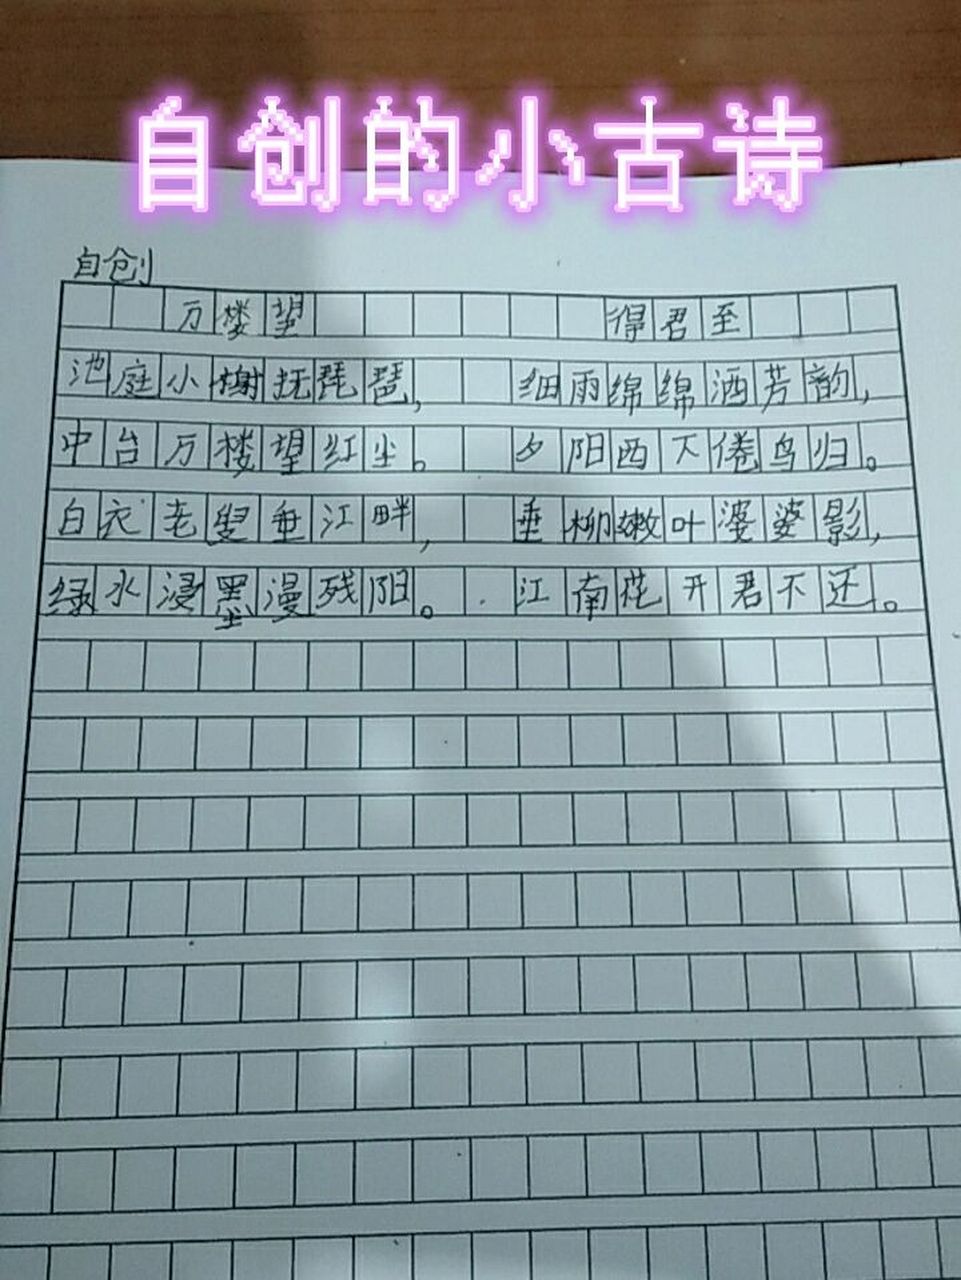 自创的小古诗
自创
万楼望 得君至
池庭小榭抚琵琶， 细雨绵绵洒芳韵，
中台万楼望红尘。 夕阳西下倦鸟归。
白衣老叟垂江畔， 垂柳嫩叶婆婆影，
绿水浸墨漫残阳。 江南花开君不还。